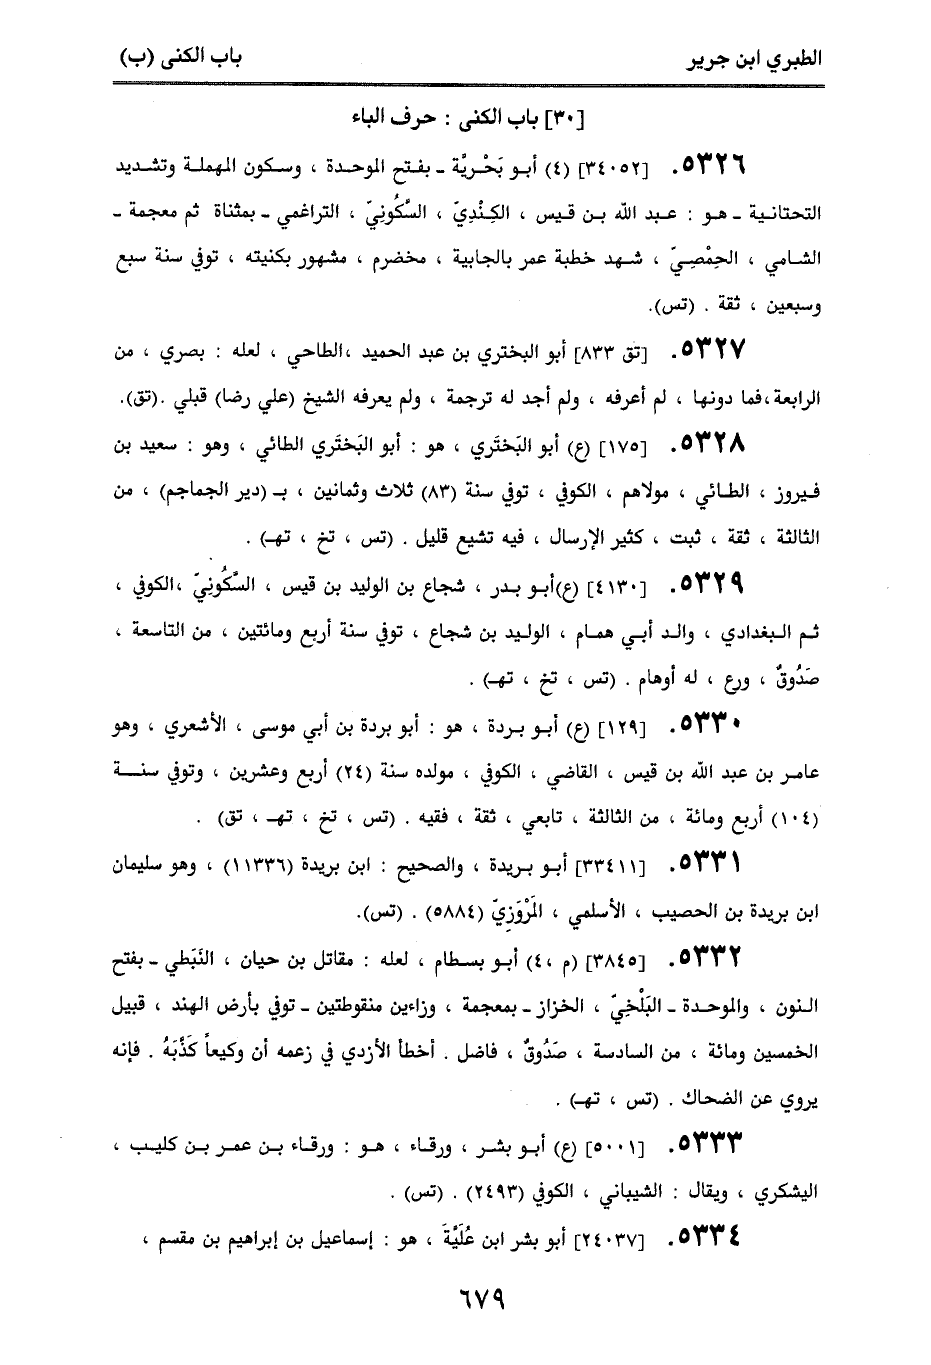 الطبري ابن جرير
باب الكنى (ب)
[٣٠] باب الكنى : حرف الباء
٥٣٢٦. [٣٤٠٥٢] (٤) أبو بَحْريَّة ـ بفتح الموحدة ، وسكون المهملة وتشديد
التحتانية ـ هو : عبد الله بن قيس ، الكِنْدِيّ ، السَّكُونِيّ ، التراغمي ـ بمثناة ثم معجمة ـ
الشامي ، الحِمْصِيّ ، شهد خطبة عمر بالجابية ، مخضرم ، مشهور بكنيته ، توفي سنة سبع
وسبعين ، ثقة . (تس).
٥٣٢٧. [تق ٨٣٣] أبو البختري بن عبد الحميد ،الطاحي ، لعله : بصري ، من
الرابعة،فما دونها ، لم أعرفه ، ولم أجد له ترجمة ، ولم يعرفه الشيخ (علي رضا) قبلي .(تق).
٥٣٢٨. [١٧٥] (ع) أبو البَختَري ، هو : أبو البَختَري الطائي ، وهو : سعيد بن
فيروز ، الطائي ، مولاهم ، الكوفي ، توفي سنة (٨٣) ثلاث وثمانين ، بـ (دير الجماجم) ، من
الثالثة ، ثقة ، ثبت ، كثير الإرسال ، فيه تشيع قليل . (تس ، تخ ، تهـ) .
٥٣٢٩. [٤١٣٠] (ع)أبو بدر ، شجاع بن الوليد بن قيس ، السَّكُونِيّ ،الكوفي ،
ثم البغدادي ، والد أبي همام ، الوليد بن شجاع ، توفي سنة أربع ومائتين ، من التاسعة ،
صَدُوقٌ ، ورع ، له أوهام . (تس ، تخ ، تهـ) .
٥٣٣٠. [١٢٩] (ع) أبو بردة ، هو : أبو بردة بن أبي موسى ، الأشعري ، وهو
عامر بن عبد الله بن قيس ، القاضي ، الكوفي ، مولده سنة (٢٤) أربع وعشرين ، وتوفي سنة
(١٠٤) أربع ومائة ، من الثالثة ، تابعي ، ثقة ، فقيه . (تس ، تخ ، تهـ ، تق) .
٥٣٣١. [٣٣٤١١] أبو بريدة ، والصحيح : ابن بريدة (١١٣٣٦) ، وهو سليمان
ابن بريدة بن الحصيب ، الأسلمي ، المَرْوَزِيّ (٥٨٨٤) . (تس).
٥٣٣٢. [٣٨٤٥] (م ،٤) أبو بسطام ، لعله : مقاتل بن حيان ، النَبَطي ـ بفتح
النون ، والموحدة ـ البَلْخِيّ ، الخزاز ـ بمعجمة ، وزاءين منقوطتين ـ توفي بأرض الهند ، قبيل
الخمسين ومائة ، من السادسة ، صَدُوقٌ ، فاضل . أخطأ الأزدي في زعمه أن وكيعاً كَذَّبَهُ . فإنه
يروي عن الضحاك . (تس ، تهـ) .
٥٣٣٣. [٥٠٠١] (ع) أبو بشر ، ورقاء ، هو : ورقاء بن عمر بن كليب ،
اليشكري ، ويقال : الشيباني ، الكوفي (٢٤٩٣) . (تس) .
٥٣٣٤. [٢٤٠٣٧] أبو بشر ابن عُلَيَّةَ ، هو : إسماعيل بن إبراهيم بن مقسم ،
٦٧٩